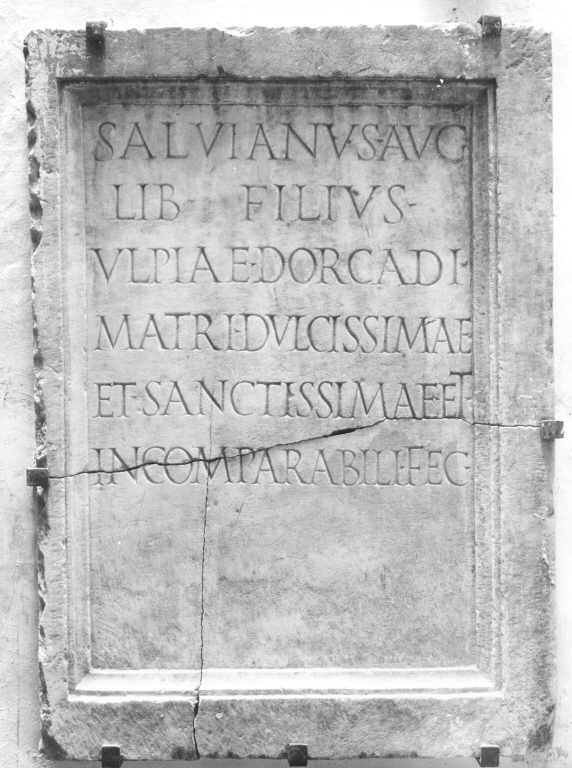 SALVIANVS·AVG
LIB· FILIVS·
VLPIAE·DORCADI·
MATRI·DVLCISSIMAE
ET·SANCTISSIMAE·ET
INCOMPARABILI·FEC·